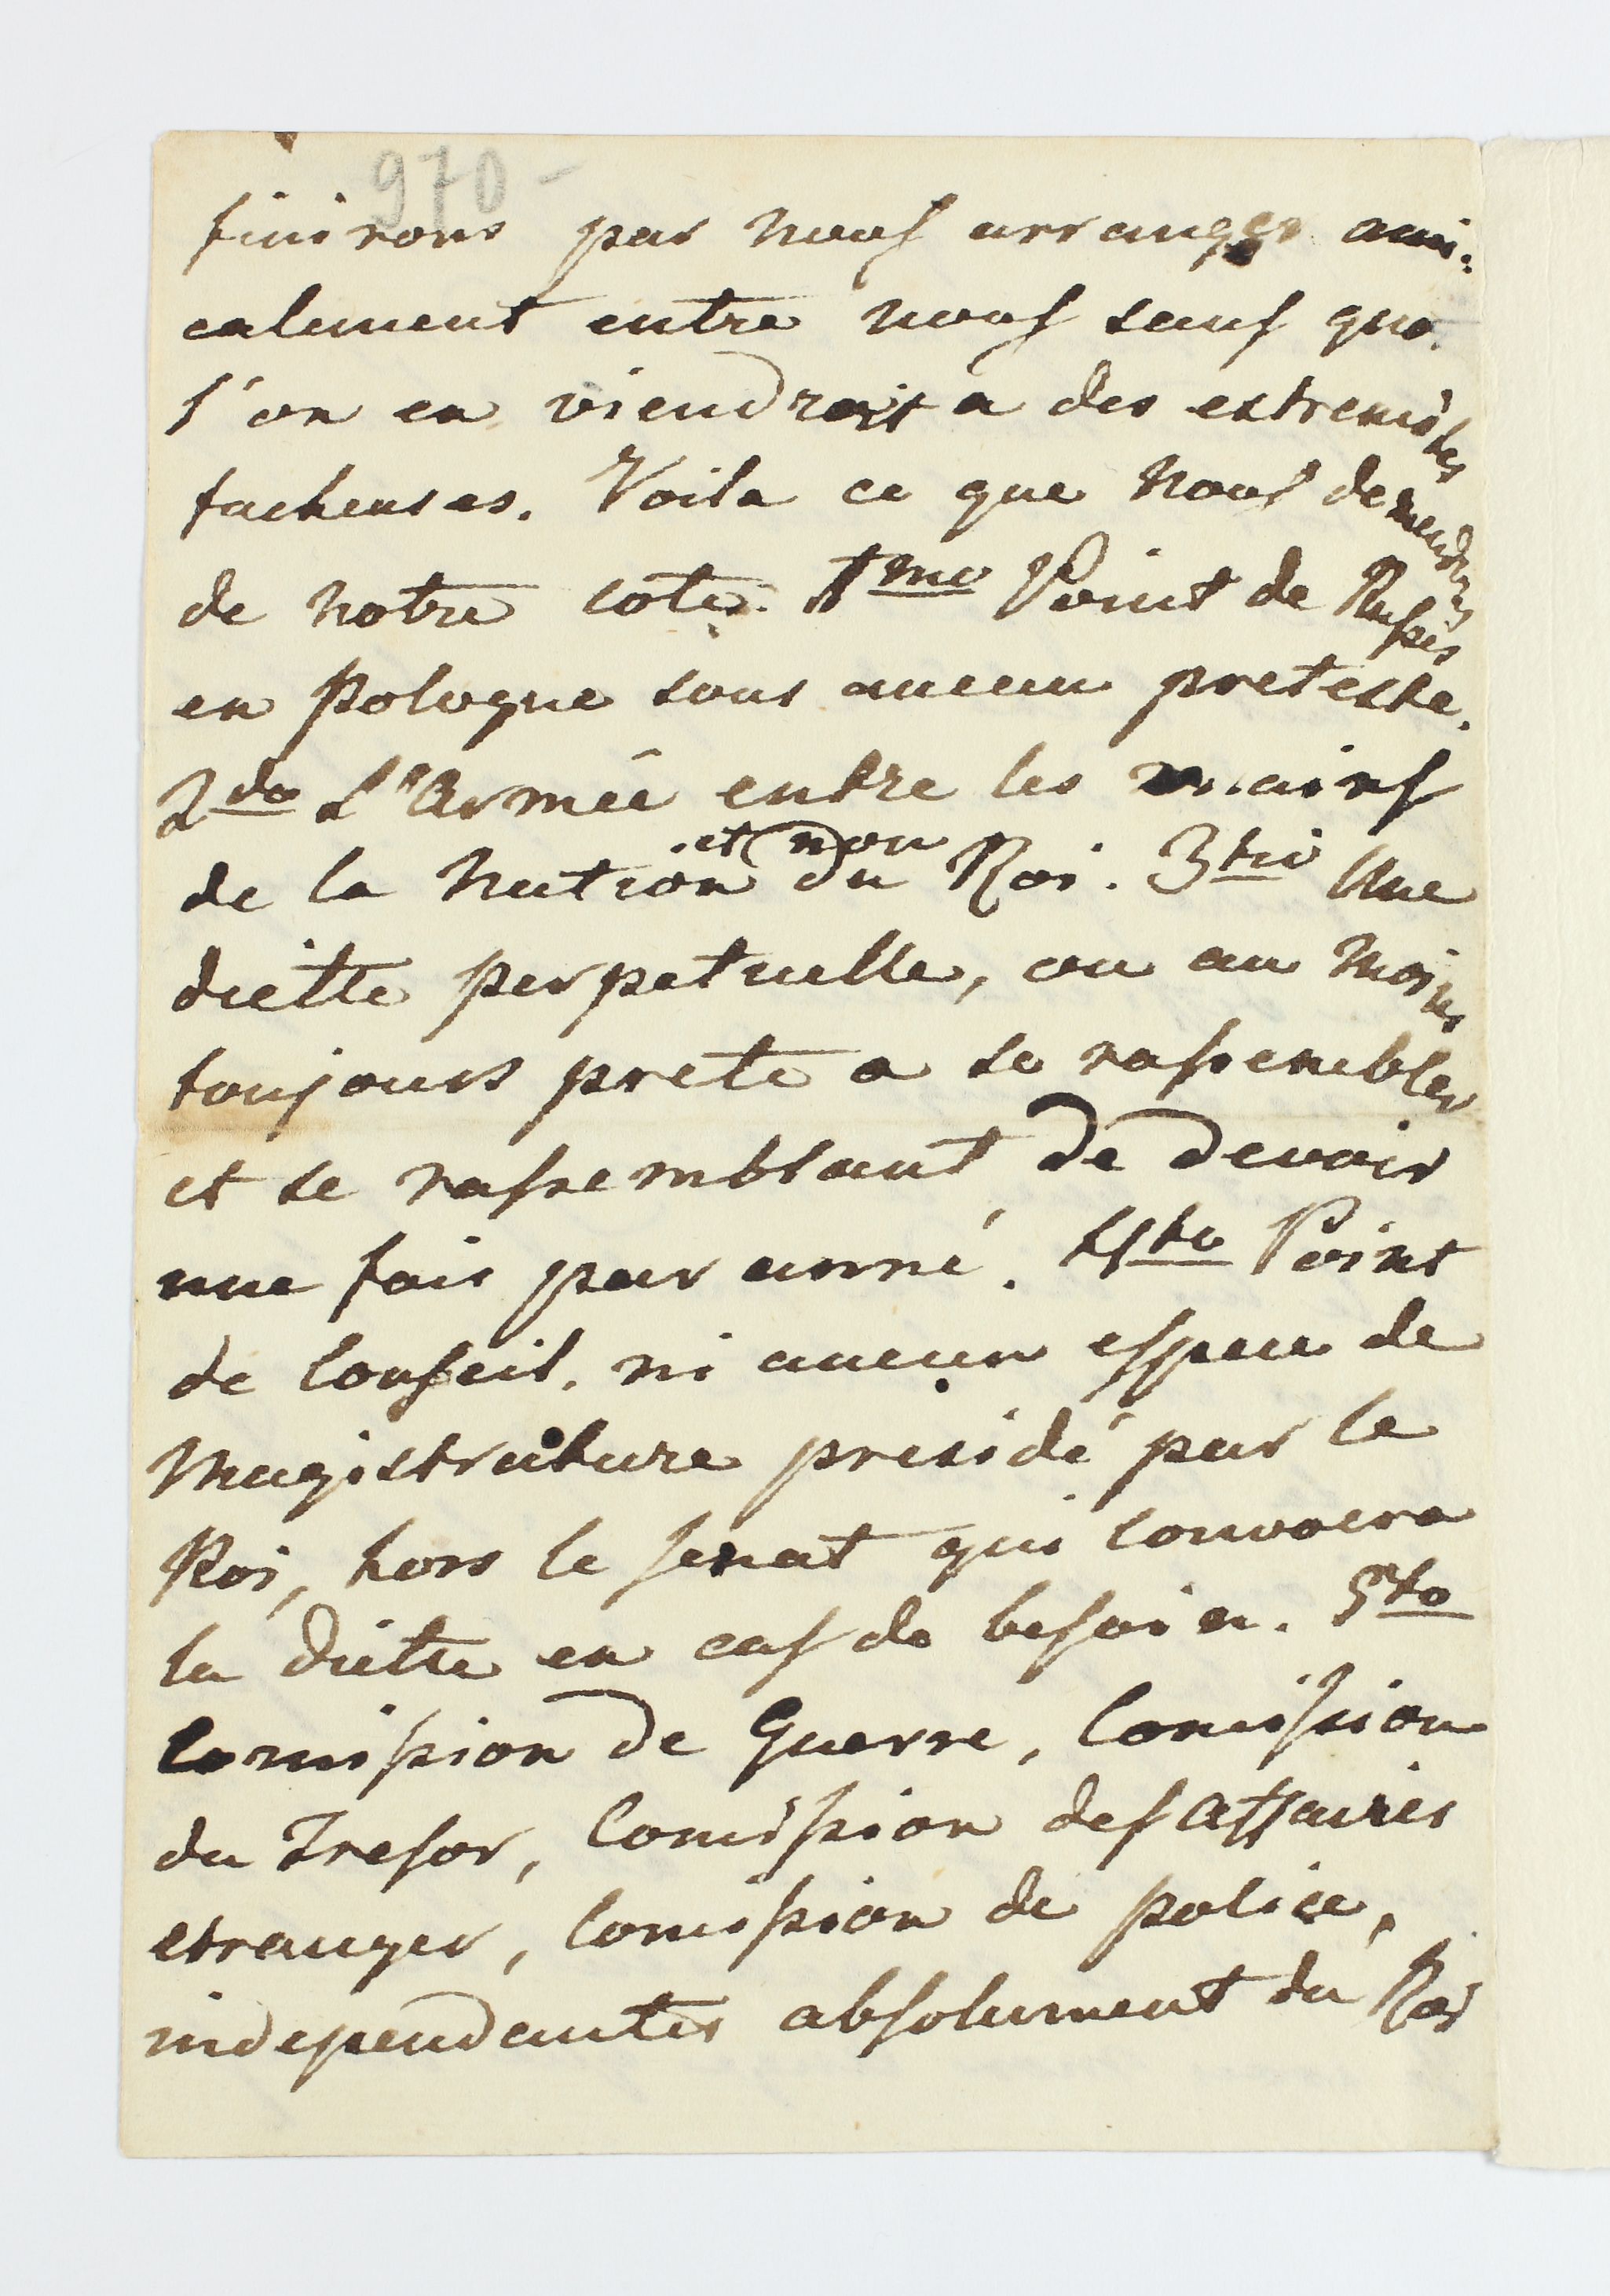 970 -
finirons par nous arranger ami-
calement entre nous sans que
l'on en viendrait a des extremites
facheuses. Voila ce que nous demendons
de notre coté. 1mo Point de Russes
en Pologne sous aucun pretexte.
2do L'Armée entre les mains
de la Nation et non du Roi. 3tio Une
diette perpetuelle, ou au moins
toujours prete a se rassembler
et se rassemblant, de devoir
une fois par anné. 4to Point
de Conseil, ni aucun espece de
Magistrature presidé par le
Roi, hors le senat qui convocera
la diette en cas de besoin. 5to
Comission de Guerre, Comission
du Tresor, Comission des Affaires
etranger, Comission de police,
independantes absolument du Roi